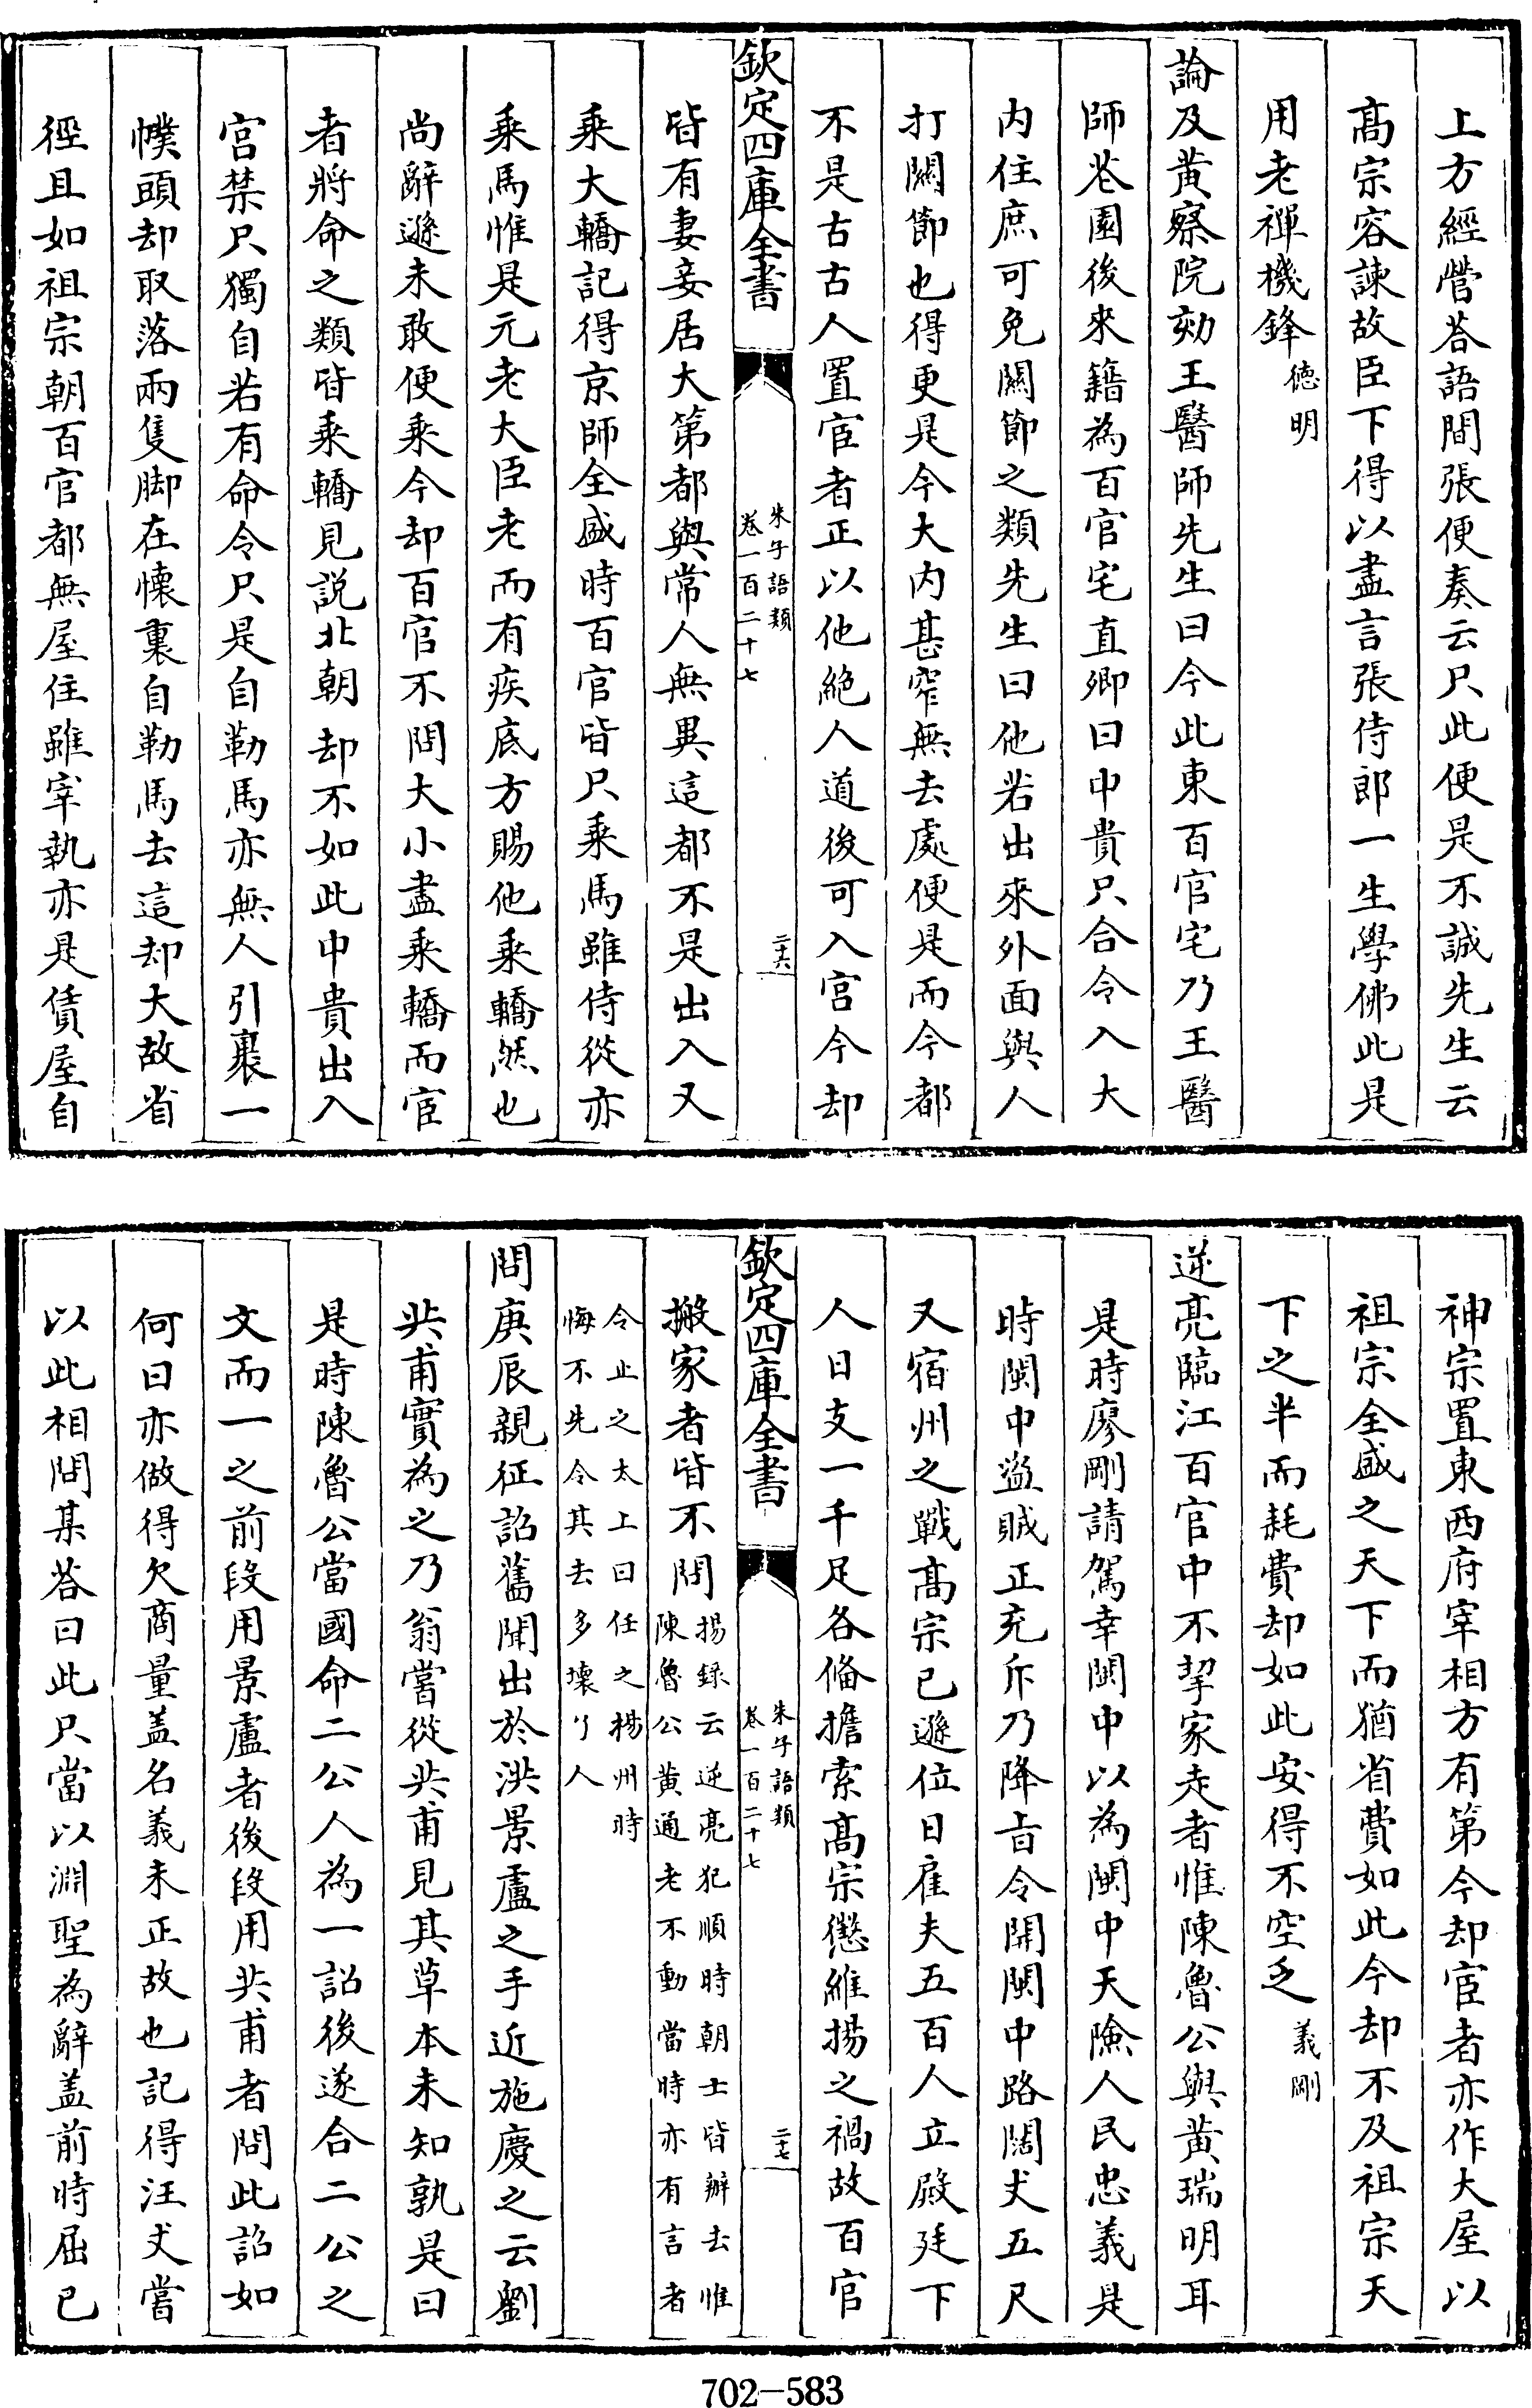 上方經營荅語間張便奏云只此便是不誠先生云
髙宗容諫故臣下得以盡言張侍郎一生學佛此是
用老禪機鋒德明
論及黄察院劾王醫師先生曰今此東百官宅乃王醫
師花園後來籍為百官宅直卿曰中貴只合令入大
内住庶可免關節之類先生曰他若出來外面與人
打關節也得更是今大内甚窄無去處便是而今都
不是古古人置宦者正以他絶人道後可入宫今却
欽定四庫全書
朱子語類
卷一百二十七
二十六
皆有妻妾居大第都與常人無異這都不是出入又
乘大轎記得京師全盛時百官皆只乘馬雖侍從亦
乘馬惟是元老大臣老而有疾底方賜他乘轎然也
尚辭遜未敢便乘今却百官不問大小盡乘轎而宦
者將命之類皆乘轎見説北朝却不如此中貴出入
宫禁只獨自若有命令只是自勒馬亦無人引裹一
幞頭却取落兩隻脚在懷裏自勒馬去這却大故省
徑且如祖宗朝百官都無屋住雖宰執亦是賃屋自
神宗置東西府宰相方有第今却宦者亦作大屋以
祖宗全盛之天下而猶省費如此今却不及祖宗天
下之半而耗費却如此安得不空乏義剛
逆亮臨江百官中不挈家走者惟陳魯公與黄瑞明耳
是時廖剛請駕幸閩中以為閩中天險人民忠義是
時閩中盗賊正充斥乃降㫖令開閩中路闊丈五尺
又宿州之戰髙宗已遜位日雇夫五百人立殿廷下
人日支一千足各俻擔索髙宗懲維揚之禍故百官
欽定四庫全書
朱子語類
卷一百二十七
二十七
搬家者皆不問揚録云逆亮犯順時朝士皆辦去惟
陳魯公黄通老不動當時亦有言者
令止之太上曰任之揚州時
悔不先令其去多壞了人
問庚辰親征詔舊聞出於洪景盧之手近施慶之云劉
共甫實為之乃翁嘗從共甫見其草本未知孰是曰
是時陳魯公當國命二公人為一詔後遂合二公之
文而一之前段用景盧者後段用共甫者問此詔如
何曰亦做得欠商量盖名義未正故也記得汪丈嘗
以此相問某荅曰此只當以淵聖為辭盖前時屈已
702—583